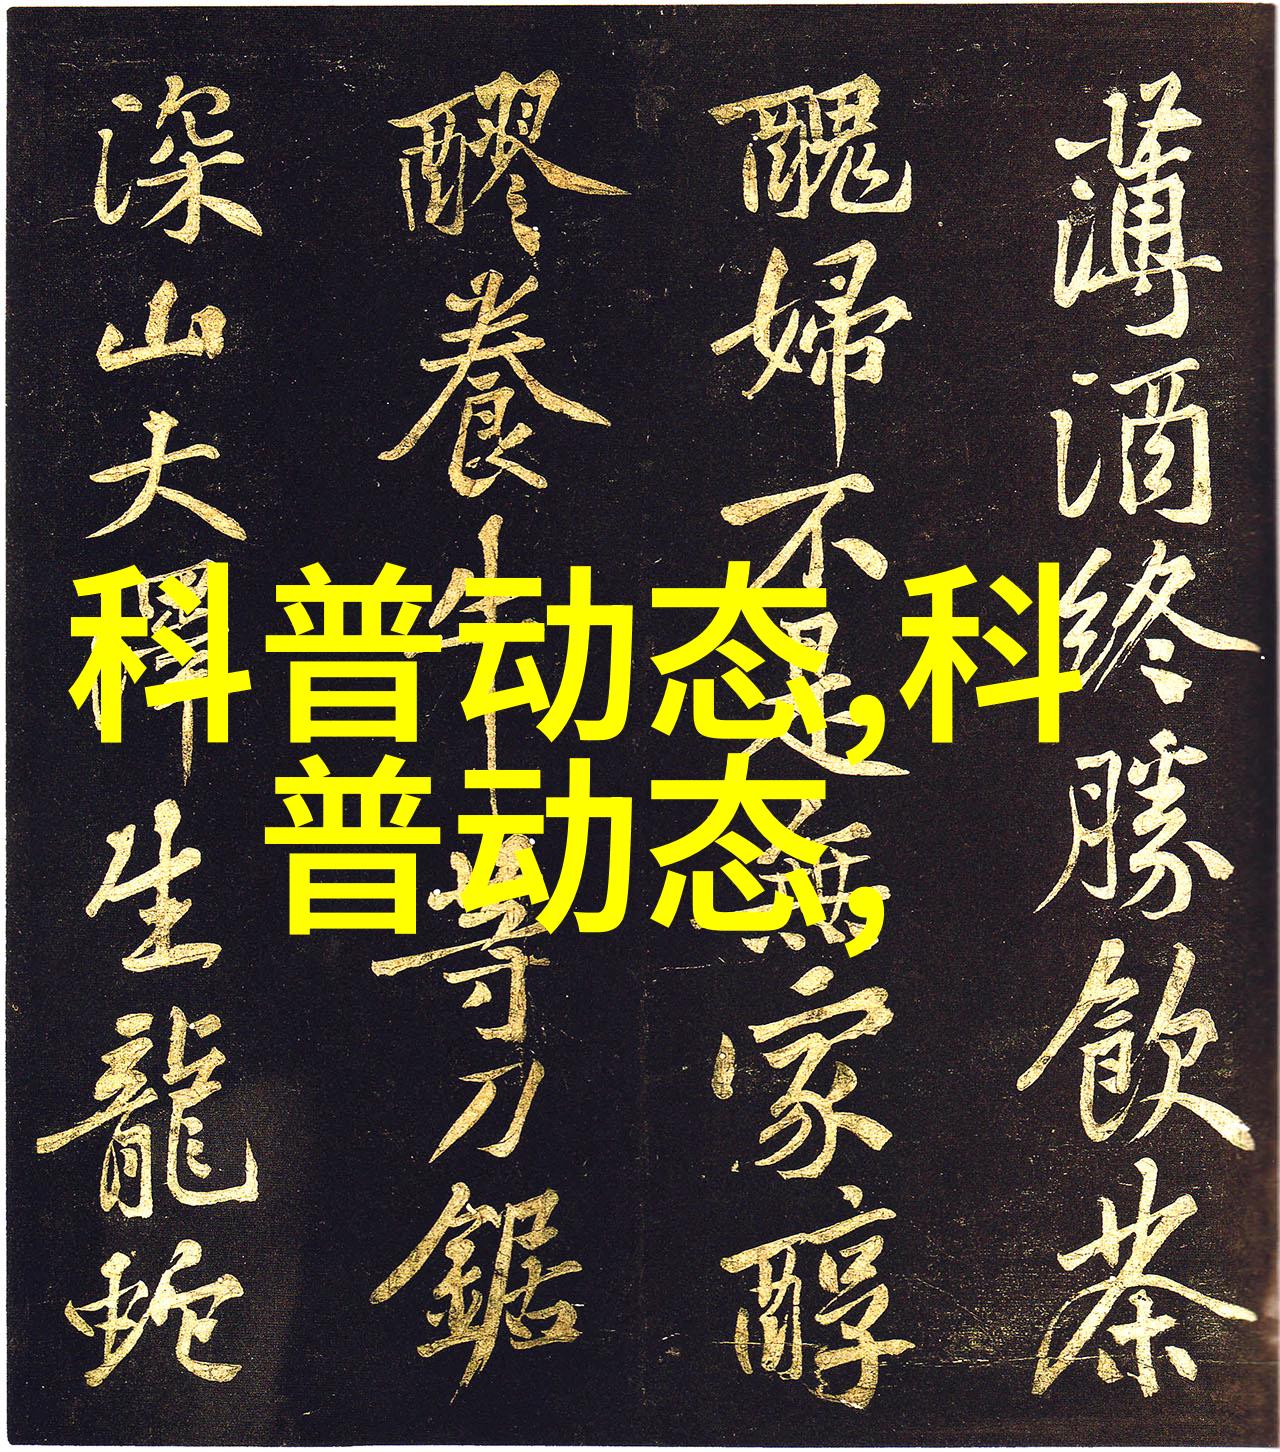 薄酒終勝飲茶
醜婦不是無家醇
醪養牛等刀鋸
深山大澤生龍蛇
科普动态,科
普动态,